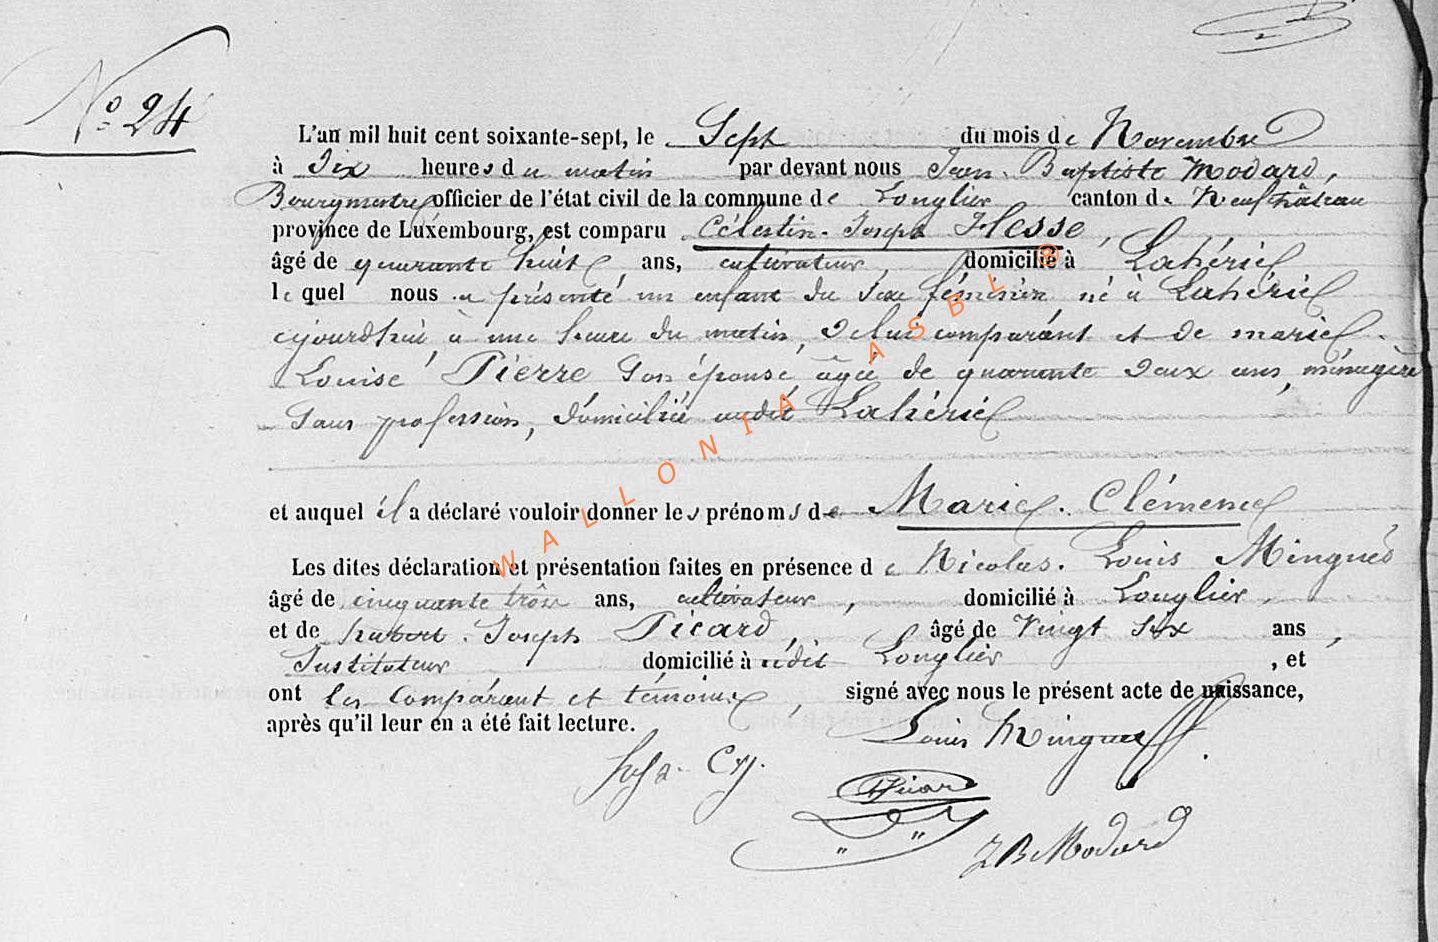 N° 24
L'an mil huit cent soixante-sept, le Sept du mois de Novembre
à Dix heures du matin par devant nous Jean-Baptiste Modard,
Bourgmestre officier de l'état civil de la commune de Longlier canton de Neufchâteau
province de Luxembourg, est comparu Célestin-Joseph Hesse,
âgé de quarante huit ans, cultivateur, domicilié à Lahérie
lequel nous a présenté un enfant du sexe féminin né à Lahérie
cejourd'hui, à une heure du matin, de lui comparant et de marie
Louise Pierre son épouse âgée de quarante deux ans, ménagère
sans profession, domiciliée audit Lahérie
et auquel il a déclaré vouloir donner les prénoms de Marie-Clémence
Les dites déclaration et présentation faites en présence de Nicolas-Louis Mingues
âgé de cinquante trois ans, cultivateur, domicilié à Longlier,
et de hubert-Joseph Picard, âgé de Vingt six ans,
Instituteur domicilié à udit Longlier, et
ont les comparant et témoins, signé avec nous le présent acte de naissance,
après qu'il leur en a été fait lecture.
Louis Mingues
Picard
JB Modard
WALLONIA ASBL ®